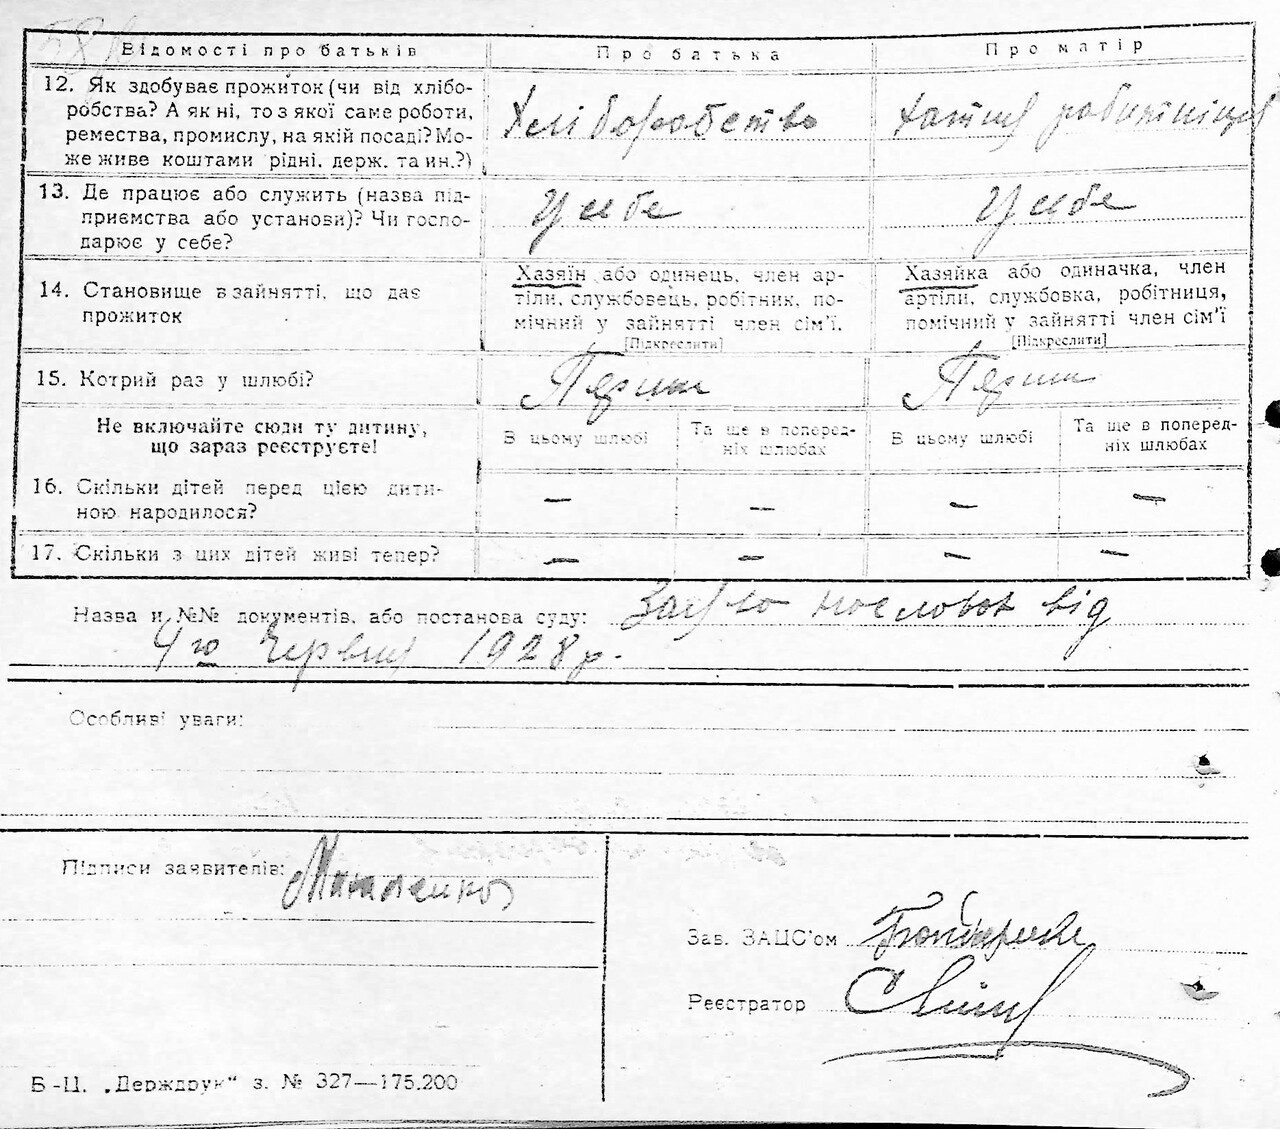 Відомості про батьків
Про батька
Про матір
12. Як здобуває прожиток (чи від хлібо-
робства? А як ні, то з якої саме роботи,
ремества, промислу, на якій посаді? Мо-
же живе коштами рідні, держ. та ин.?)
Хліборобство
Хатня робітниця
13. Де працює або служить (назва під-
приємства або установи)? Чи госпо-
дарює у себе?
У себе
У себе
14. Становище в зайнятті, що дає
прожиток
Хазяїн або одинець, член ар-
тіли, службовець, робітник, по-
мічний у зайнятті член сім'ї.
[Підкреслити]
Хазяйка або одиначка, член
артіли, службовка, робітниця,
помічний у зайнятті член сім'ї
[Підкреслити]
15. Котрий раз у шлюбі?
Перший
Перший
Не включайте сюди ту дитину,
що зараз реєструєте!
В цьому шлюбі
Та ще в поперед-
ніх шлюбах
В цьому шлюбі
Та ще в поперед-
ніх шлюбах
16. Скільки дітей перед цією дити-
ною народилося?
— — — —
17. Скільки з цих дітей живі тепер?
— — — —
Назва и №№ документів, або постанова суду: від
4го Червня 1928 р.
Особливі уваги:
Підписи заявителів:
Зав. ЗАЦС'ом
Реєстратор
Б-Ц. „Держдрук“ з. № 327—175.200